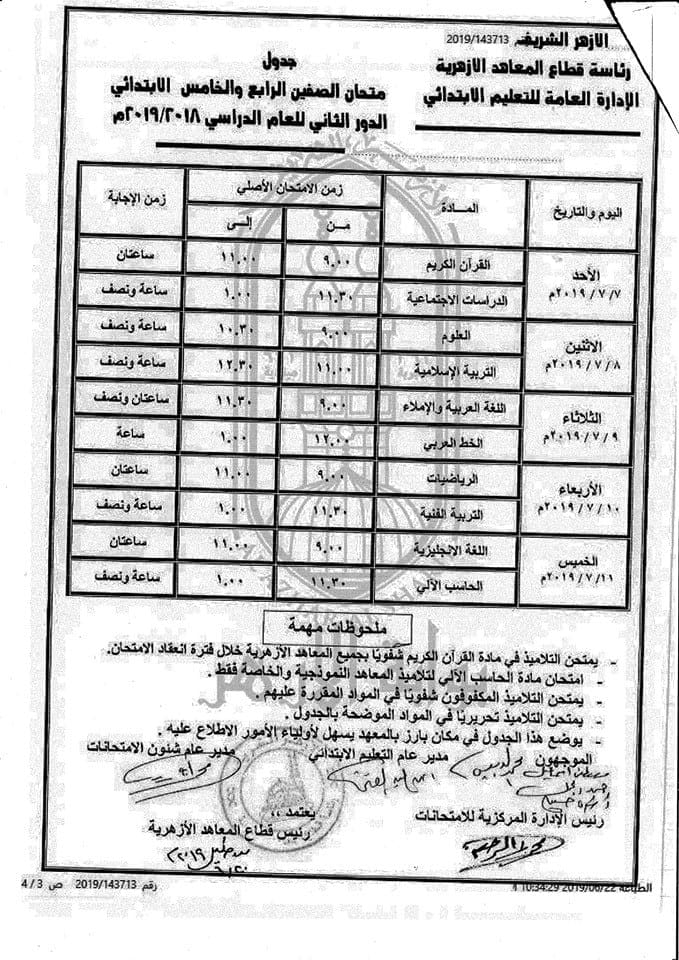 الأزهر الشريف 2019/143713
رئاسة قطاع المعاهد الأزهرية
الإدارة العامة للتعليم الابتدائي
جدول
متحان الصفين الرابع والخامس الابتدائي
الدور الثاني للعام الدراسي ٢٠١٩/٢٠١٨م
اليوم والتاريخ المـــادة زمن الامتحان الأصلي زمن الإجابة
مـــن إلـــى
الأحد ٢٠١٩/٧/٧م القرآن الكريم ٩.٠٠ ١١.٠٠ ساعتان
الدراسات الاجتماعية ١١.٣٠ ١.٠٠ ساعة ونصف
الاثنين ٢٠١٩/٧/٨م العلوم ٩.٠٠ ١٠.٣٠ ساعة ونصف
التربية الإسلامية ١١.٠٠ ١٢.٣٠ ساعة ونصف
الثلاثاء ٢٠١٩/٧/٩م اللغة العربية والإملاء ٩.٠٠ ١١.٣٠ ساعتان ونصف
الخط العربي ١٢.٠٠ ١.٠٠ ساعة
الأربعاء ٢٠١٩/٧/١٠م الرياضيات ٩.٠٠ ١١.٠٠ ساعتان
التربية الفنية ١١.٣٠ ١.٠٠ ساعة ونصف
الخميس ٢٠١٩/٧/١١م اللغة الانجليزية ٩.٠٠ ١١.٠٠ ساعتان
الحاسب الآلي ١١.٣٠ ١.٠٠ ساعة ونصف
ملحوظات مهمة
- يمتحن التلاميذ في مادة القرآن الكريم شفويًا بجميع المعاهد الأزهرية خلال فترة انعقاد الامتحان.
- امتحان مادة الحاسب الآلي لتلاميذ المعاهد النموذجية والخاصة فقط .
- يمتحن التلاميذ المكفوفون شفويًا في المواد المقررة عليهم .
- يمتحن التلاميذ تحريريًا في المواد الموضحة بالجدول .
- يوضع هذا الجدول في مكان بارز بالمعهد يسهل لأولياء الأمور الاطلاع عليه .
الموجهون مدير عام التعليم الابتدائي مدير عام شئون الامتحانات
رئيس الإدارة المركزية للامتحانات
يعتمد ،،
رئيس قطاع المعاهد الأزهرية
الطباعة 2019/06/22 10:34:29 رقم 2019/143713 ص 3 / 4